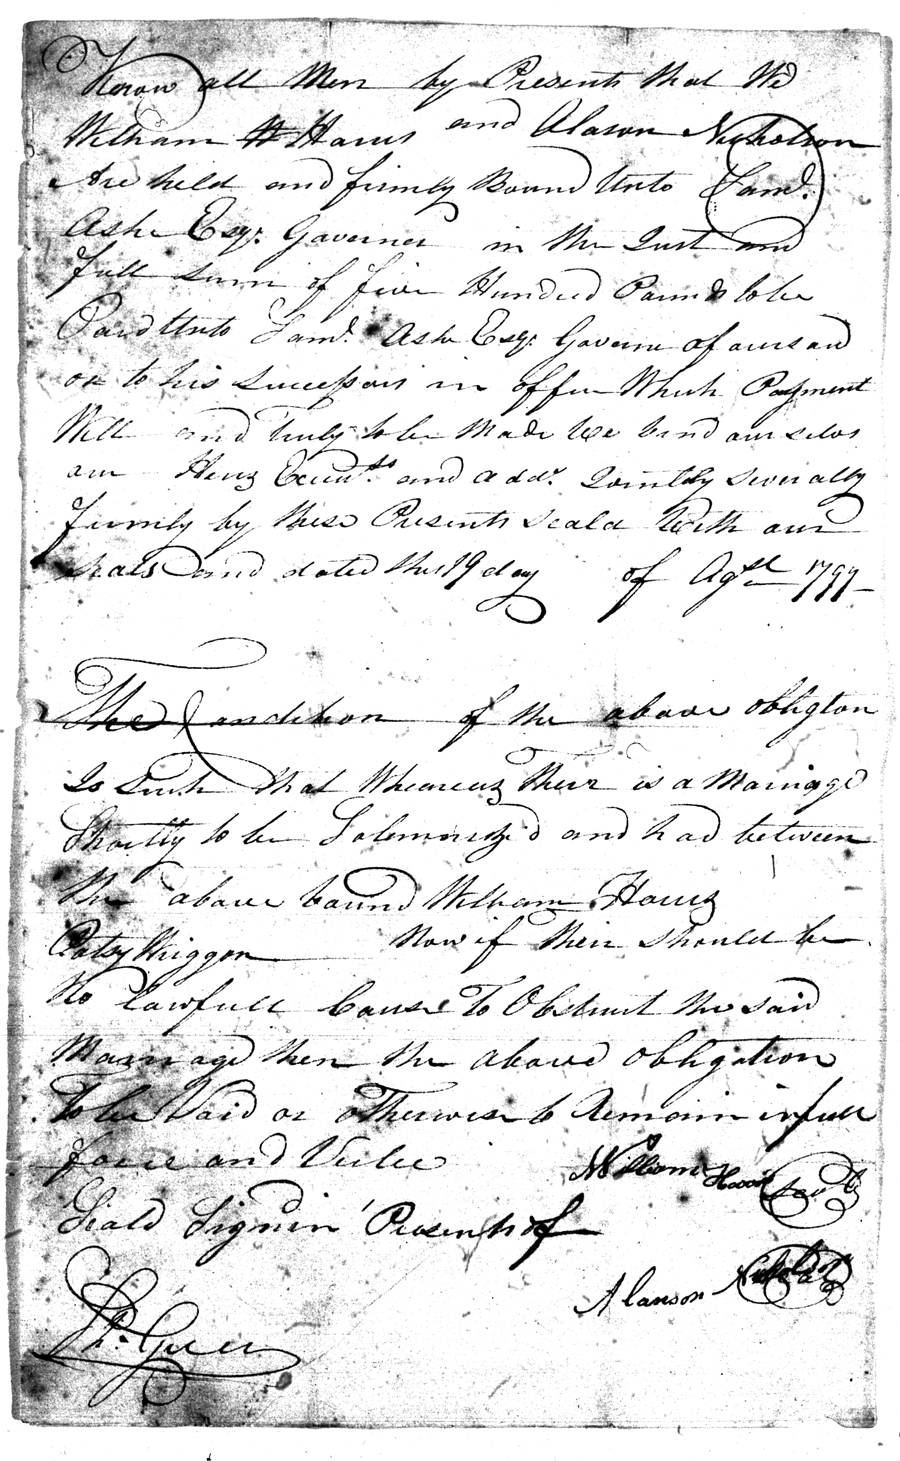 Know all Men by Presents that We
William H Harris and Alason Nicholson
Are held and firmly Bound Unto Saml.
Ashe Esqr. Governer in the Just and
full sum of five Hundred Pounds to be
Paid Unto Saml. Ashe Esqr. Govern of oursaid
or to his Successors in office Which Payment
Will and Truly to be Made we bind our selvs
our Heirs Excuts. and Adds. Jointly Severally
firmly by these Presents Seald With our
Seals and dated this 19 day of Agst 1799
The Condition of the above obligton
Is Such that Wheareas Their is a Marriage
Shortly to be Solemnizd and had between
the above bound William Harris
Patsy Wriggon Now if their should be
No lawfull Cause To Obstruct the said
Marriage then the above obligation
To be Void or otherwise to Remain in full
force and Virtue
William Harris Seal
Seald Signd in Presents of
Alanson Nicholson